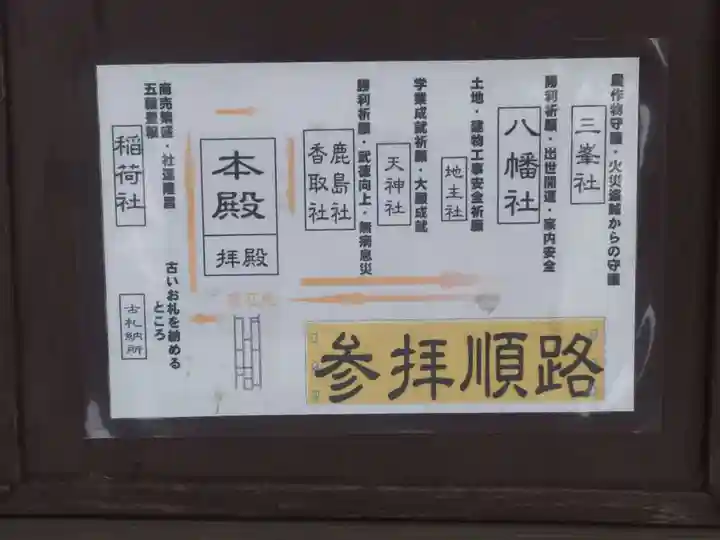 農作物守護・火災盗難からの守護
三峯社
勝利祈願・出世開運・家内安全
八幡社
土地・建物工事安全祈願
地主社
学業成就祈願・大願成就
天神社
勝利祈願・武徳向上・無病息災
鹿島社
香取社
本殿
拝殿
商売繁盛・社運隆昌
五穀豊穣
稲荷社
古いお札を納める
ところ
古札納所
参拝順路